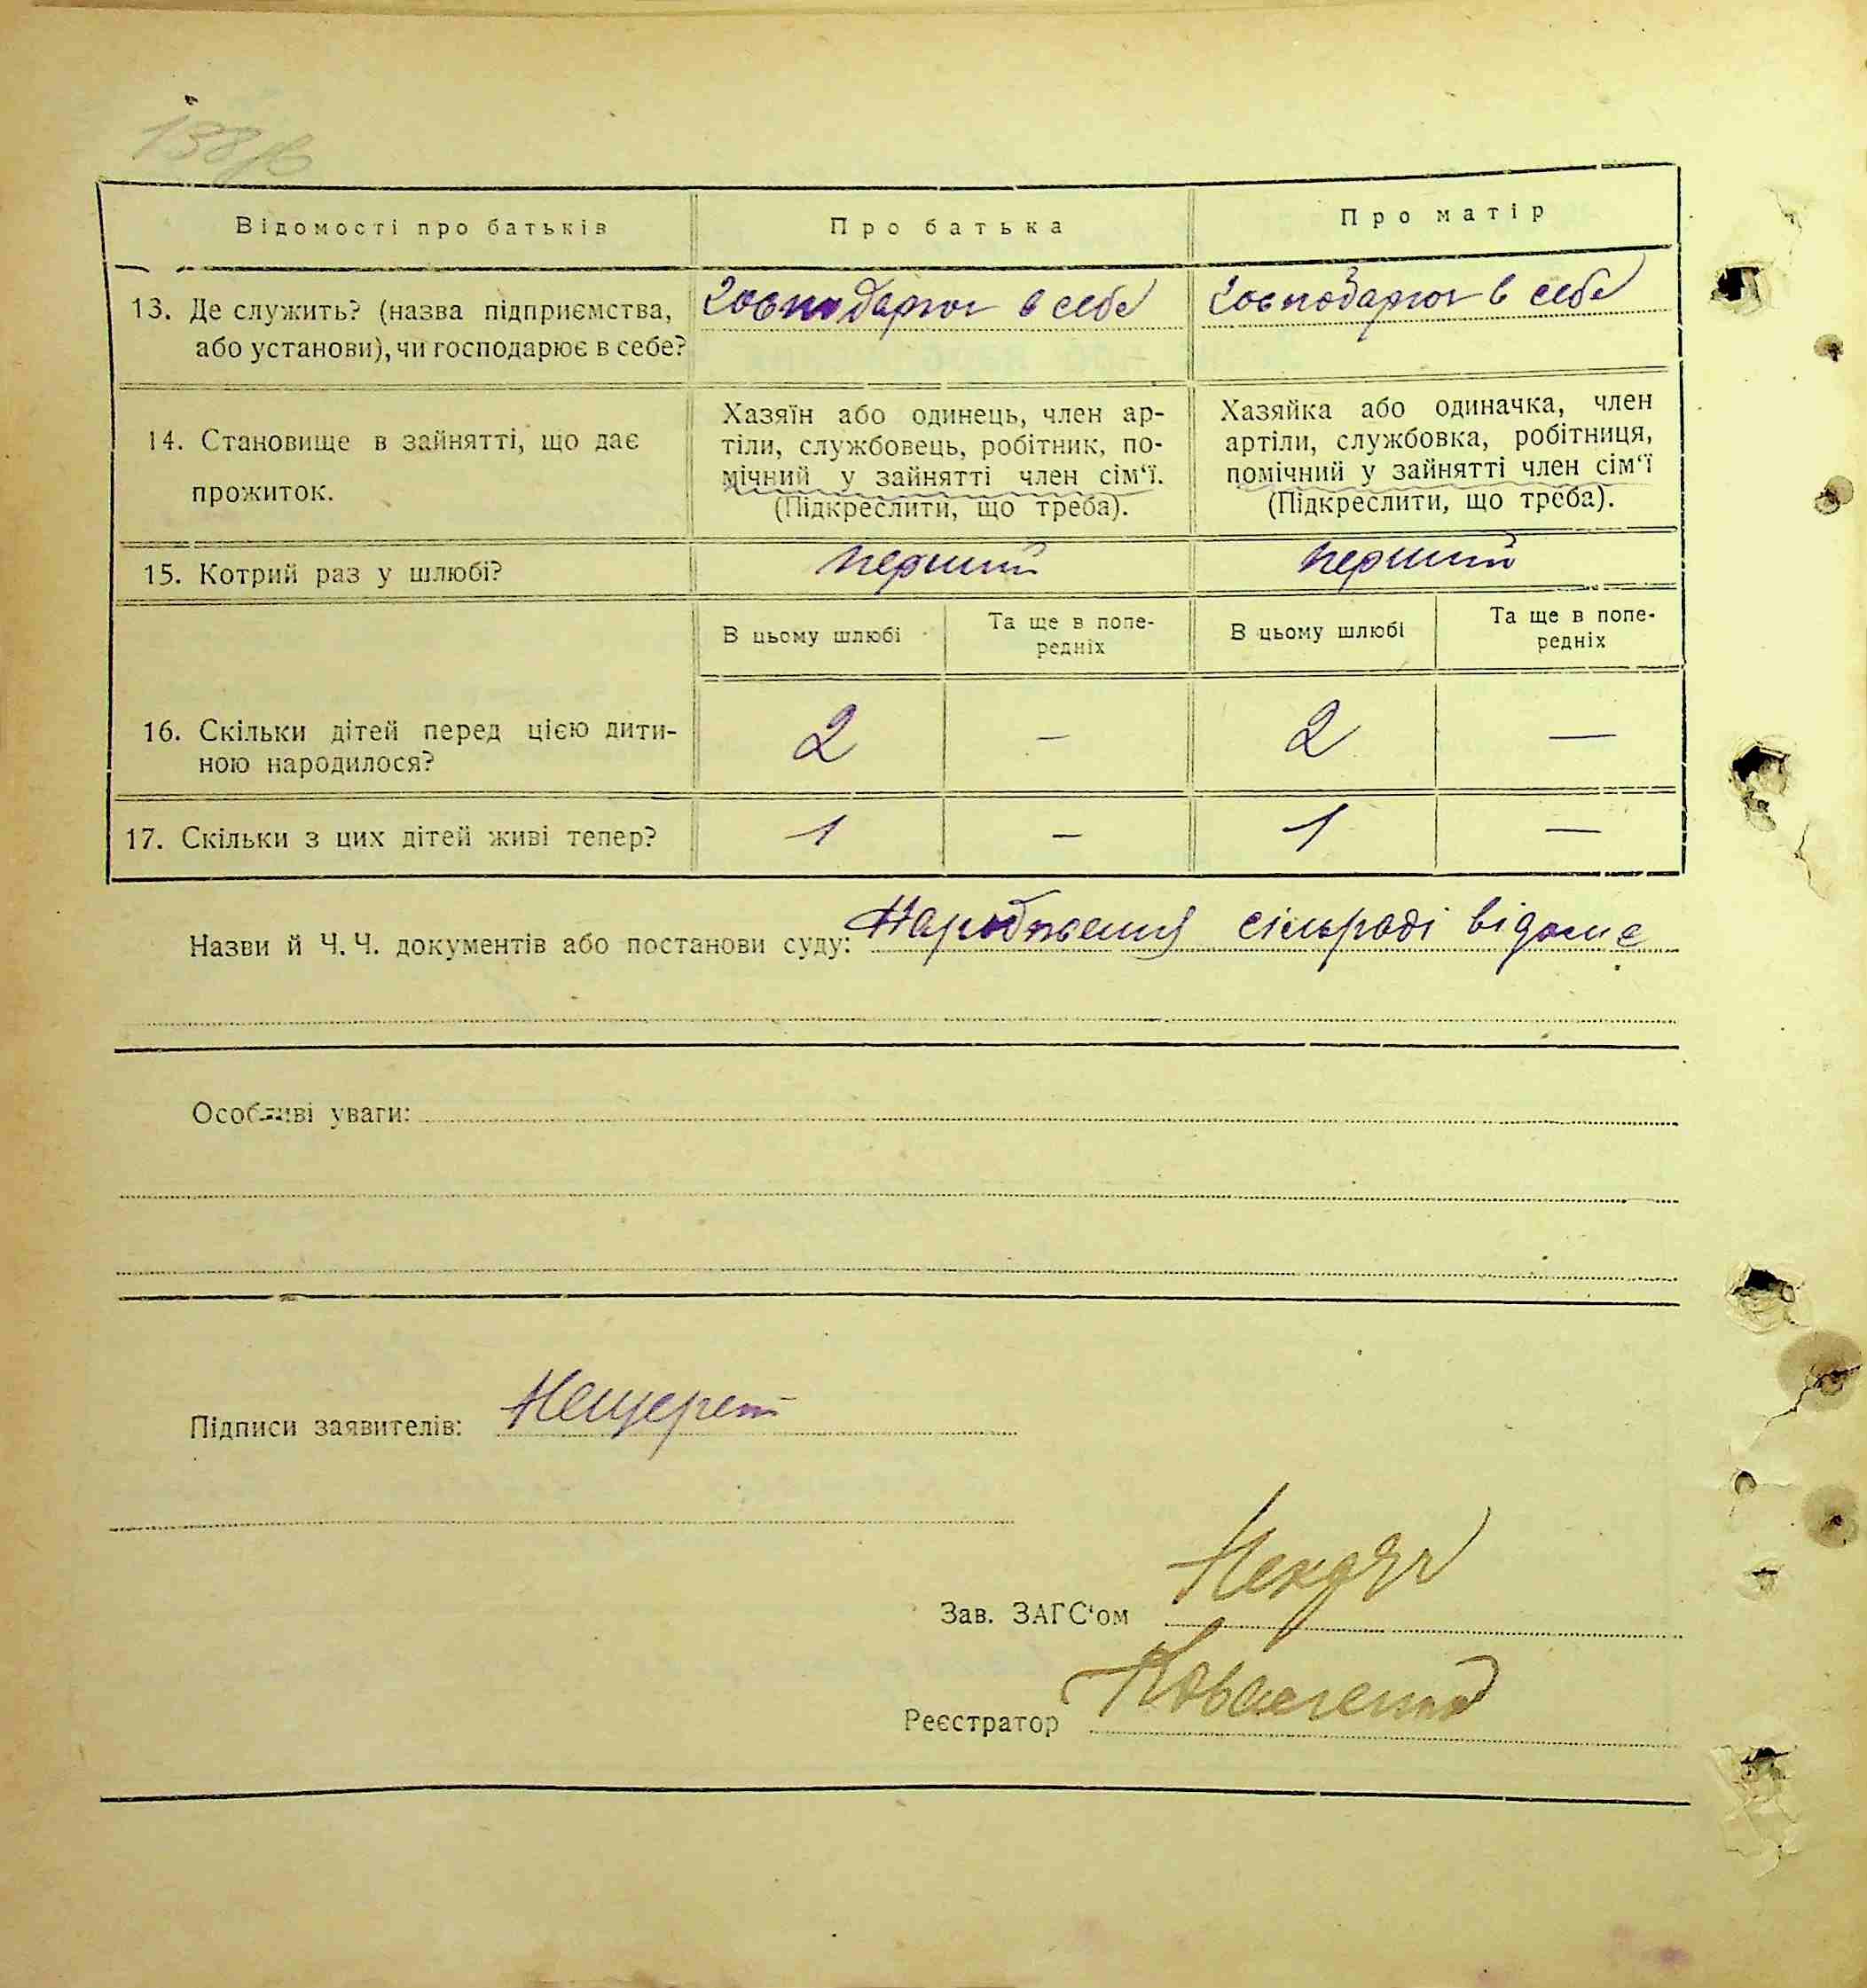 138зв
Відомості про батьків
Про батька
Про матір
13. Де служить? (назва підприємства,
або установи), чи господарює в себе?
господарює в себе
господарює в себе
14. Становище в зайнятті, що дає
прожиток.
Хазяїн або одинець, член ар-
тіли, службовець, робітник, по-
мічний у зайнятті член сім‘ї.
(Підкреслити, що треба).
Хазяйка або одиначка, член
артіли, службовка, робітниця,
помічний у зайнятті член сім‘ї
(Підкреслити, що треба).
15. Котрий раз у шлюбі?
перший
перший
В цьому шлюбі
Та ще в попе-
редніх
В цьому шлюбі
Та ще в попе-
редніх
16. Скільки дітей перед цією дити-
ною народилося?
2 — 2 —
17. Скільки з цих дітей живі тепер?
1 — 1 —
Назви й Ч. Ч. документів або постанови суду: Народження сільраді відоме
Особливі уваги:
Підписи заявителів: Нещерет
Зав. ЗАГС‘ом
Реєстратор Коваленко